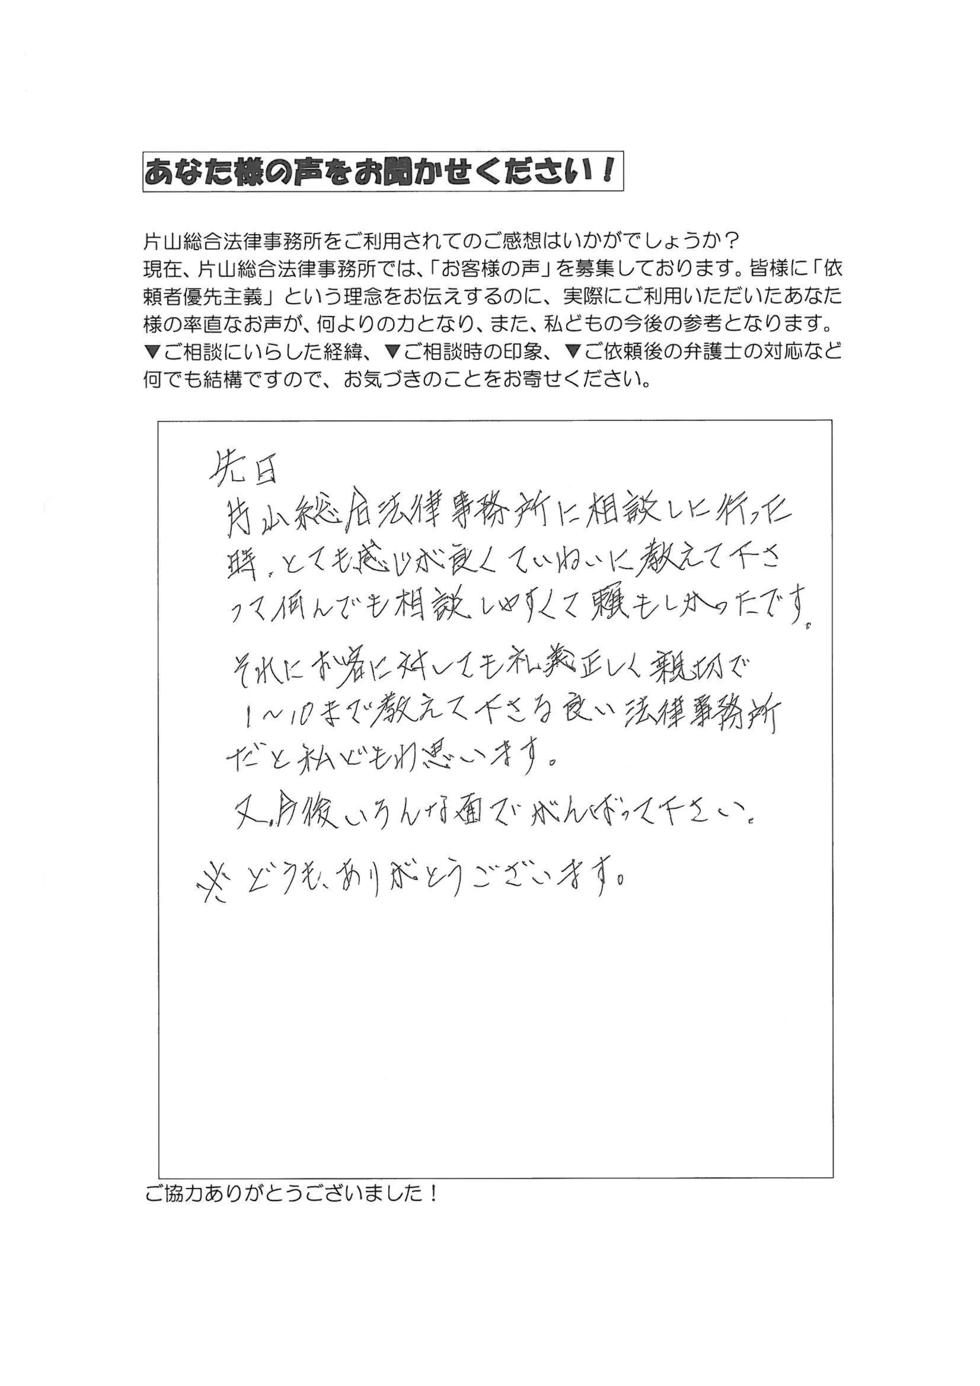 あなた様の声をお聞かせください！
片山総合法律事務所をご利用されてのご感想はいかがでしょうか？
現在、片山総合法律事務所では、「お客様の声」を募集しております。皆様に「依
頼者優先主義」という理念をお伝えするのに、実際にご利用いただいたあなた
様の率直なお声が、何よりの力となり、また、私どもの今後の参考となります。
▼ご相談にいらした経緯、▼ご相談時の印象、▼ご依頼後の弁護士の対応など
何でも結構ですので、お気づきのことをお寄せください。
先日
片山総合法律事務所に相談しに行った
時、とても感じが良くていねいに教えて下さ
って何んでも相談しやすくて頼もしかったです。
それにお客に対しても礼義正しく親切で
1～10まで教えて下さる良い法律事務所
だと私どもわ思います。
又、今後いろんな面でがんばって下さい。
※どうも、ありがとうございます。
ご協力ありがとうございました！